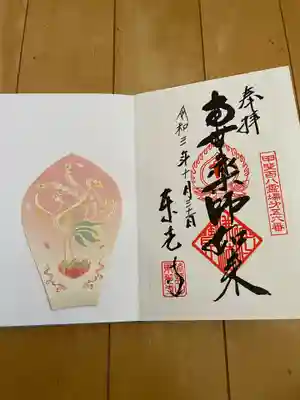 奉拝
甲斐百八霊場第五六番
薬師如来
令和三年十月三十一日
東光寺